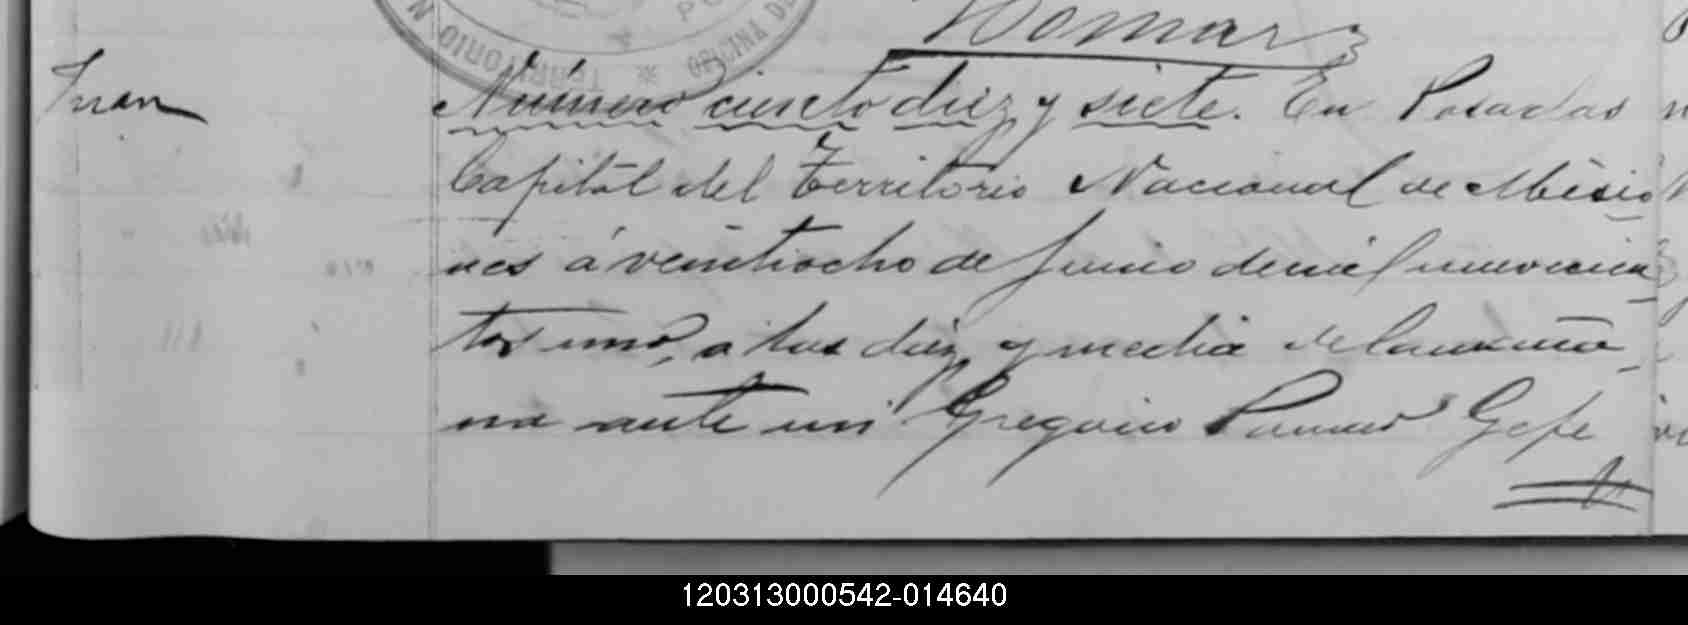 TERRITORIO N * OFICINA DE
Juan
Número ciento diez y siete. En Posadas
Capital del Territorio Nacional de Misio
nes á veintiocho de Junio de mil novecien
tos uno, a las diez y media de la maña
na ante mi Gregorio Gefe
120313000542-014640